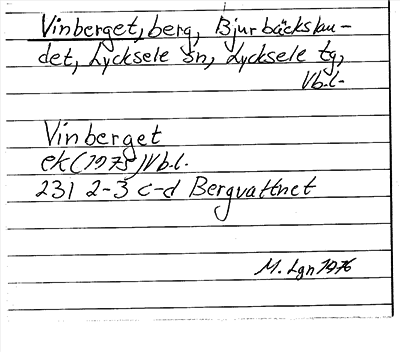 Vinberget, berg, Bjurbäckslan-
det, Lycksele sn, Lycksele tg,
Vb.l.
Vinberget
ek (1975) Vb.l.
231 2-3 c-d Bergvattnet
M. Lgn 1976